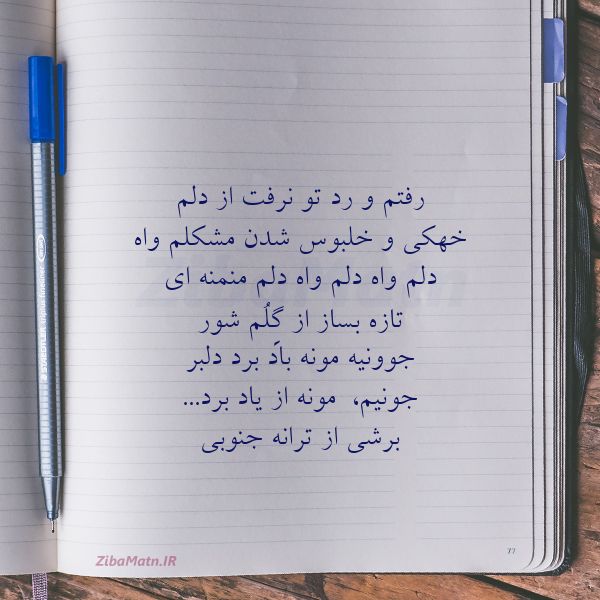 رفتم و رد تو نرفت از دلم
خهکی و خلبوس شدن مشکلم واه
دلم واه دلم واه دلم منمنه ای
تازه بساز از گلُم شور
جوونیه مونه بادَ برد دلبر
جونیم، مونه از یاد برد...
برشی از ترانه جنوبی
ZibaMatn.IR